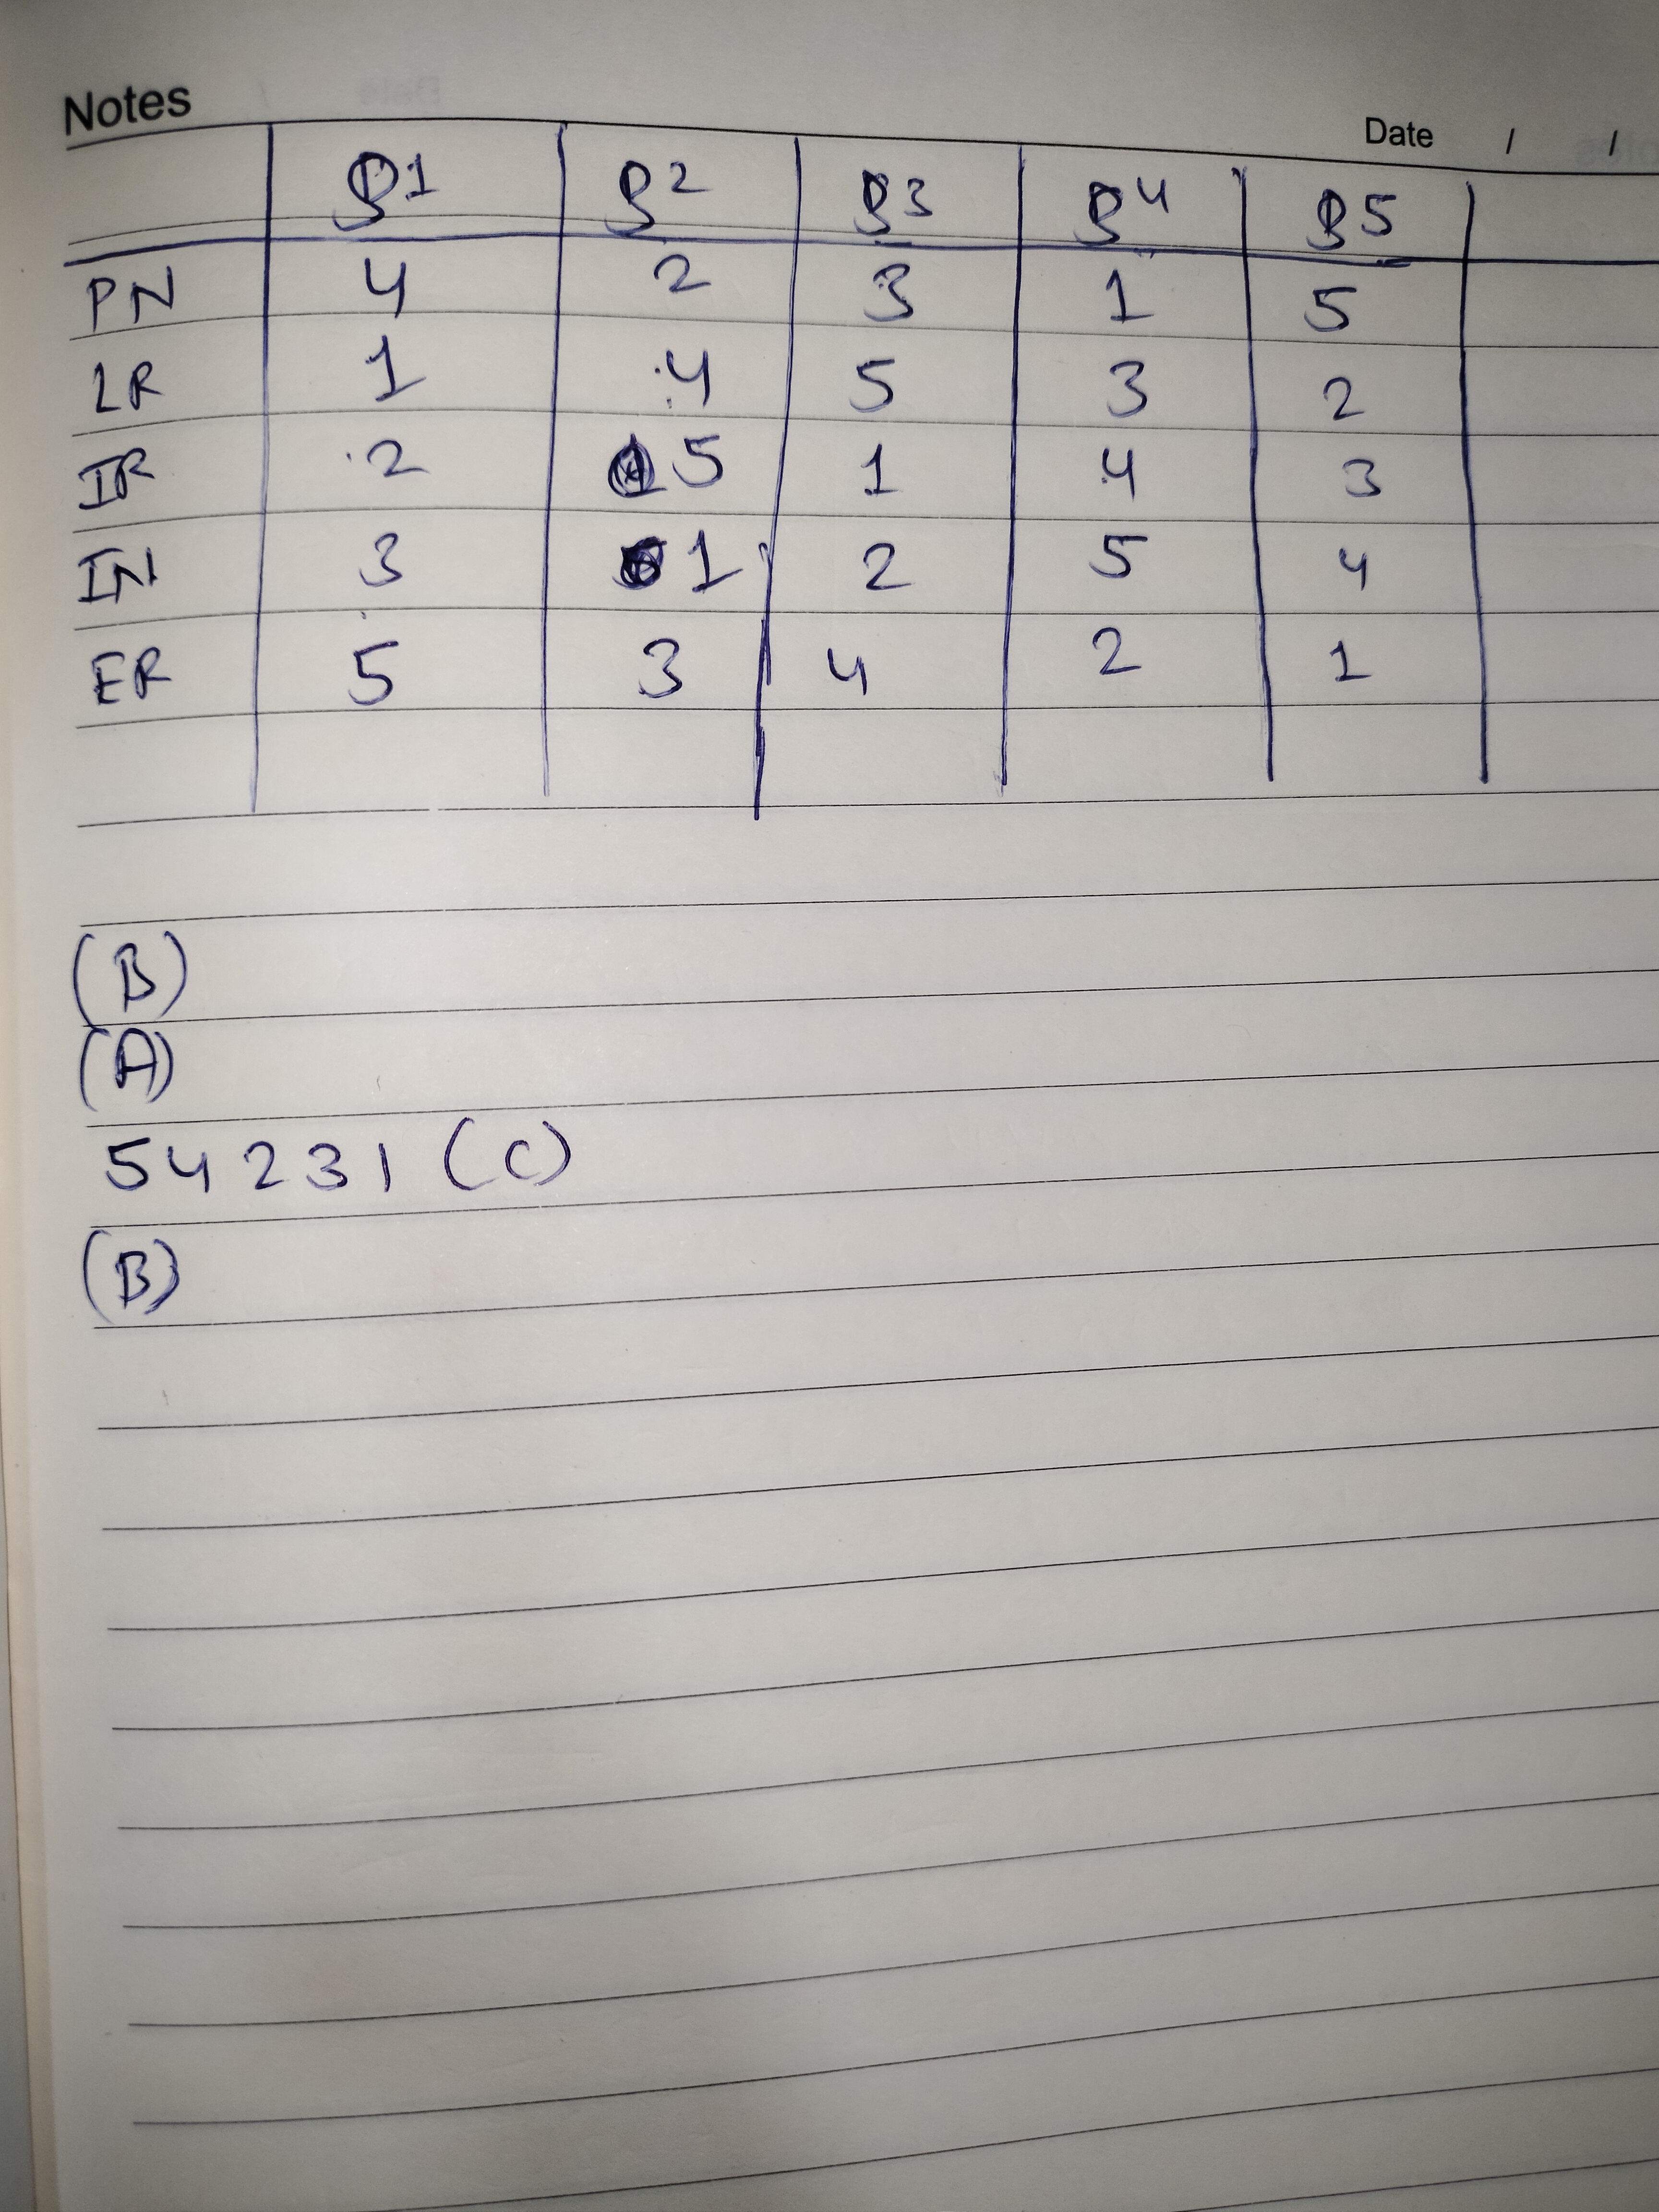 Notes
Date / /
S1 S2 S3 S4 S5
PN 4 2 3 1 5
LR 1 4 5 3 2
IR 2 5 1 4 3
IN 3 1 2 5 4
ER 5 3 4 2 1
(B)
(A)
54231 (C)
(B)